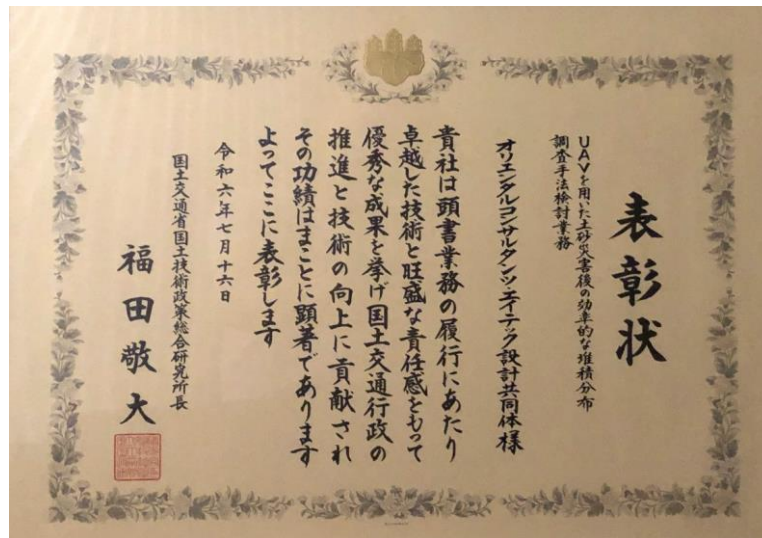 表彰状
UAVを用いた土砂災害後の効率的な堆積分布
調査手法検討業務
オリエンタルコンサルタンツ・エイテック設計共同体様
貴社は頭書業務の履行にあたり
卓越した技術と旺盛な責任感をもって
優秀な成果を挙げ国土交通行政の
推進と技術の向上に貢献され
その功績はまことに顕著であります
よってここに表彰します
令和六年七月十六日
国土交通省国土技術政策総合研究所長
福田敬大